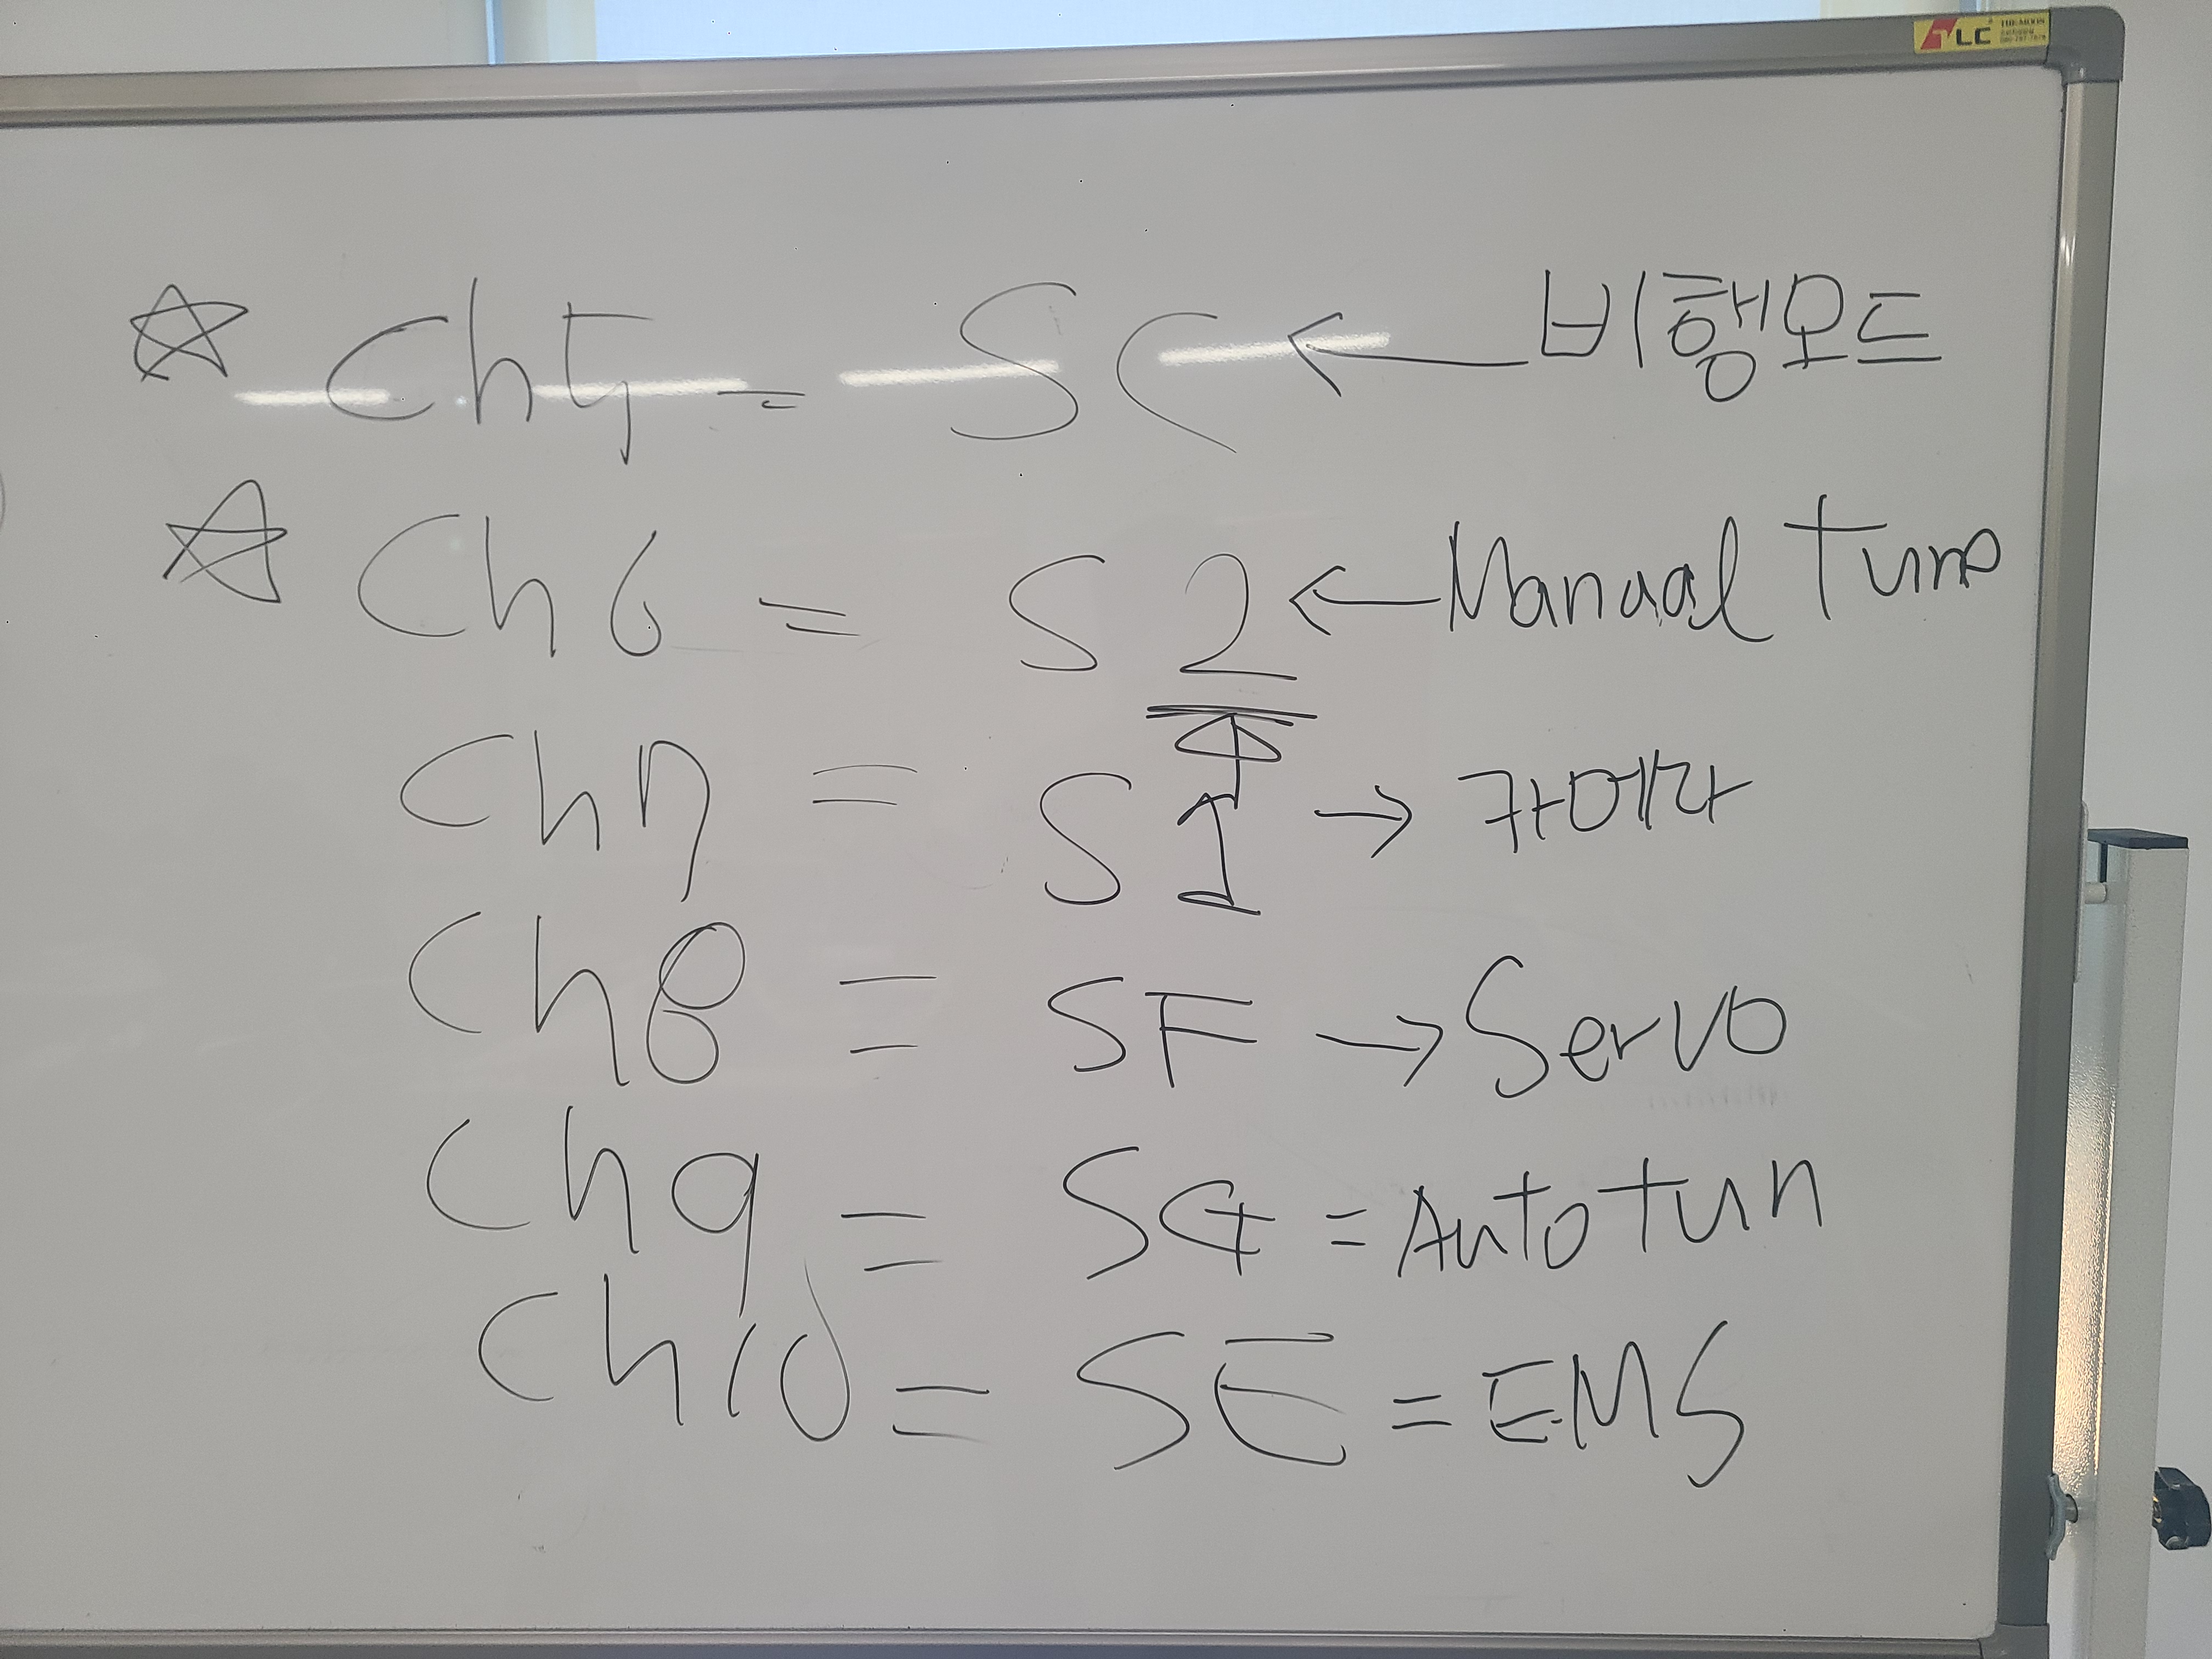 TLC
☆ Ch5 = SC ← 비행모드
☆ Ch6 = S2 ← Manual tune
Ch7 = S1 → 카메라
Ch8 = SF → Servo
Ch9 = SG = Auto tun
Ch10 = SE = EMS